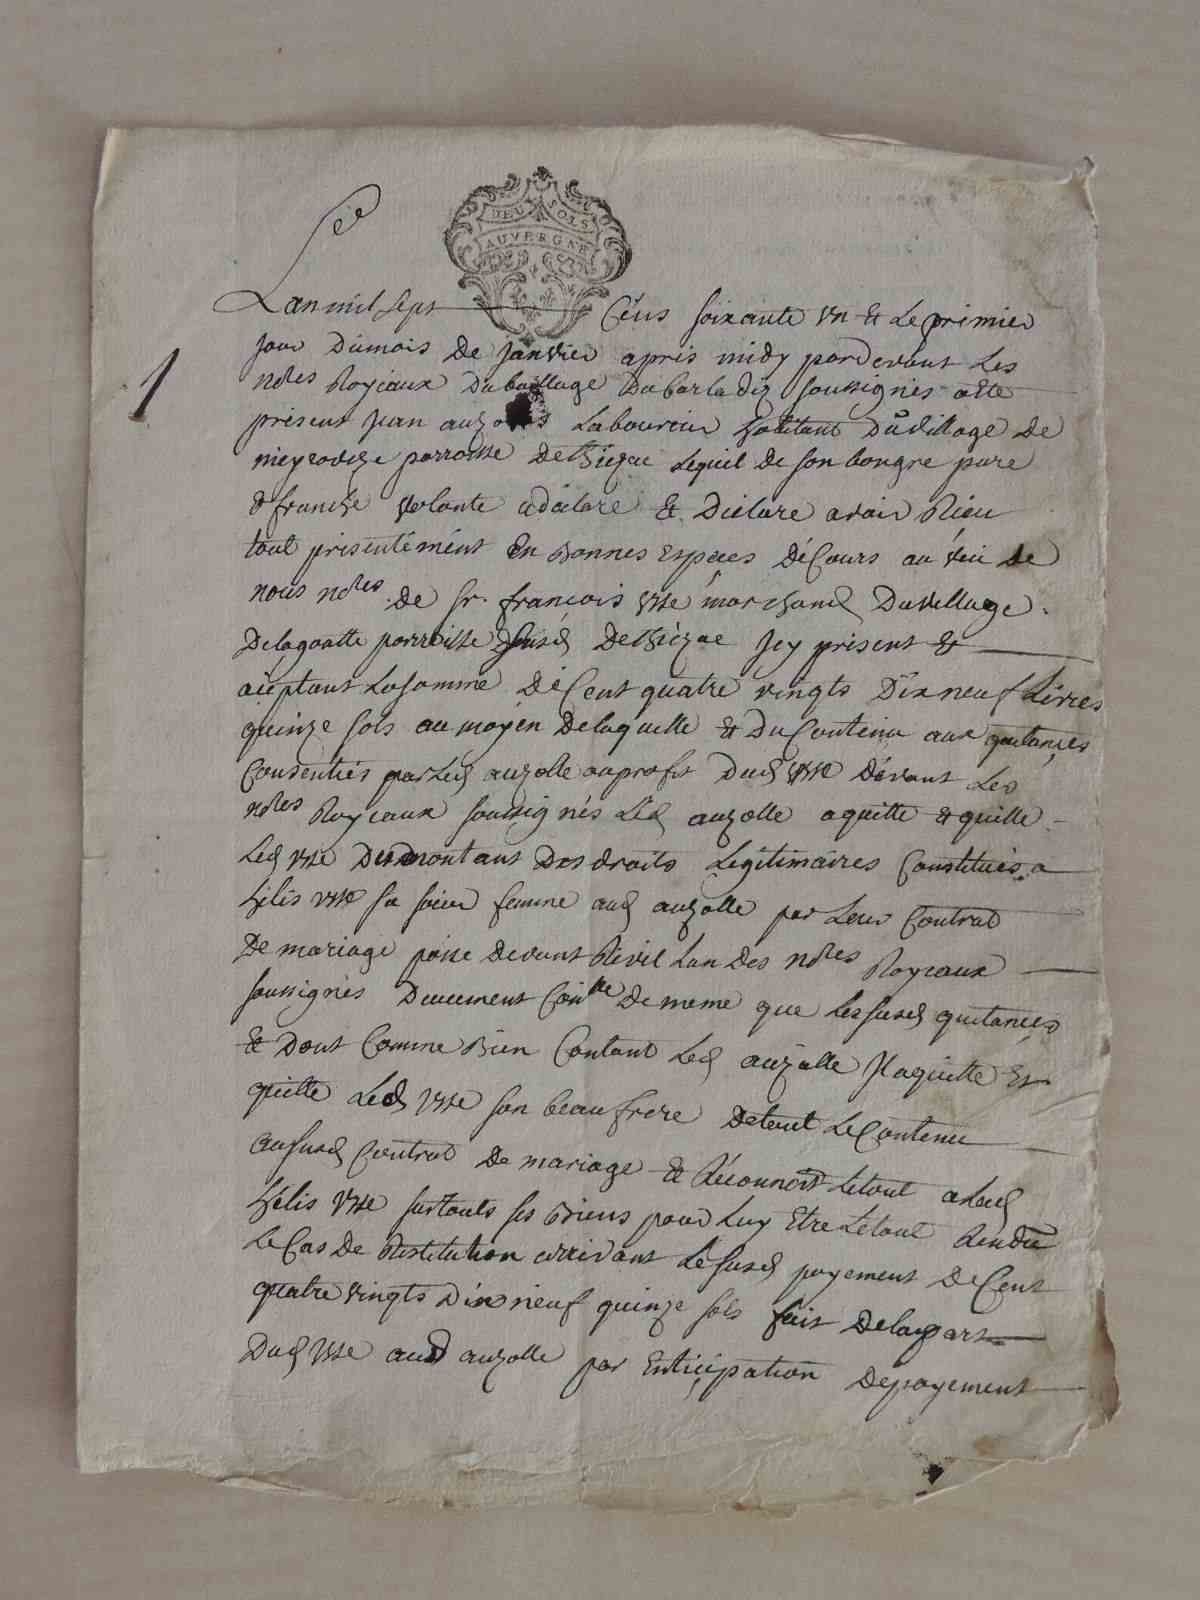 DEUX SOLS
AUVERGNE
1
Lan mil sept Céns soixante un & Le primier
jour Dumois De Janvier apris midy pardevant Les
no^res Royeaux Dubaillage Du soussignés aétté
présent jean auzolle Laboureur habitant Du village De
parroisse DeThiezac Lequel De son bon gre pure
& franche volonte adéclaré & Déclare avoir Réeu
tout présentément En Bonnes Espéces Décours au veu de
nous no^res. De sr. françois vsse marchand Du village
Delagoutte parroisse susd DeThiezac Jcy présent &
acéptant La somme De Cent quatre vingts Dix neuf Livres
quinze sols au moyén Delaquelle & Du Contenu aux quitances
Consenties par Led auzolle au profit Dud vsse Dévant Les
no^res Royeaux soussignés Led auzolle aquitte & quitte
Led vsse Du montant Des droits Légitimaires Constitués a
hélis vsse sa soeur femme aud auzolle par Leur Contrat
De mariage passé devant Revel Lun Des no^res Royeaux
soussignés Duement Con^lle De meme que Les susd quitances
& Dont Comme Bien Contant Led auzolle Jl aquitte Et
quitte Led vsse son beau frere Detout Le Contenu
au susd Contrat De mariage & Réconnoit Letout a Lad
hélis vsse sur touts ses Biens pour Luy Etre Létout Rendu
Le Cas De Réstitution arrivant Le susd payement De Cent
quatre vingts Dix neuf quinze sols fait Delapart
Dud vsse aud auzolle par Enticipation Depayement